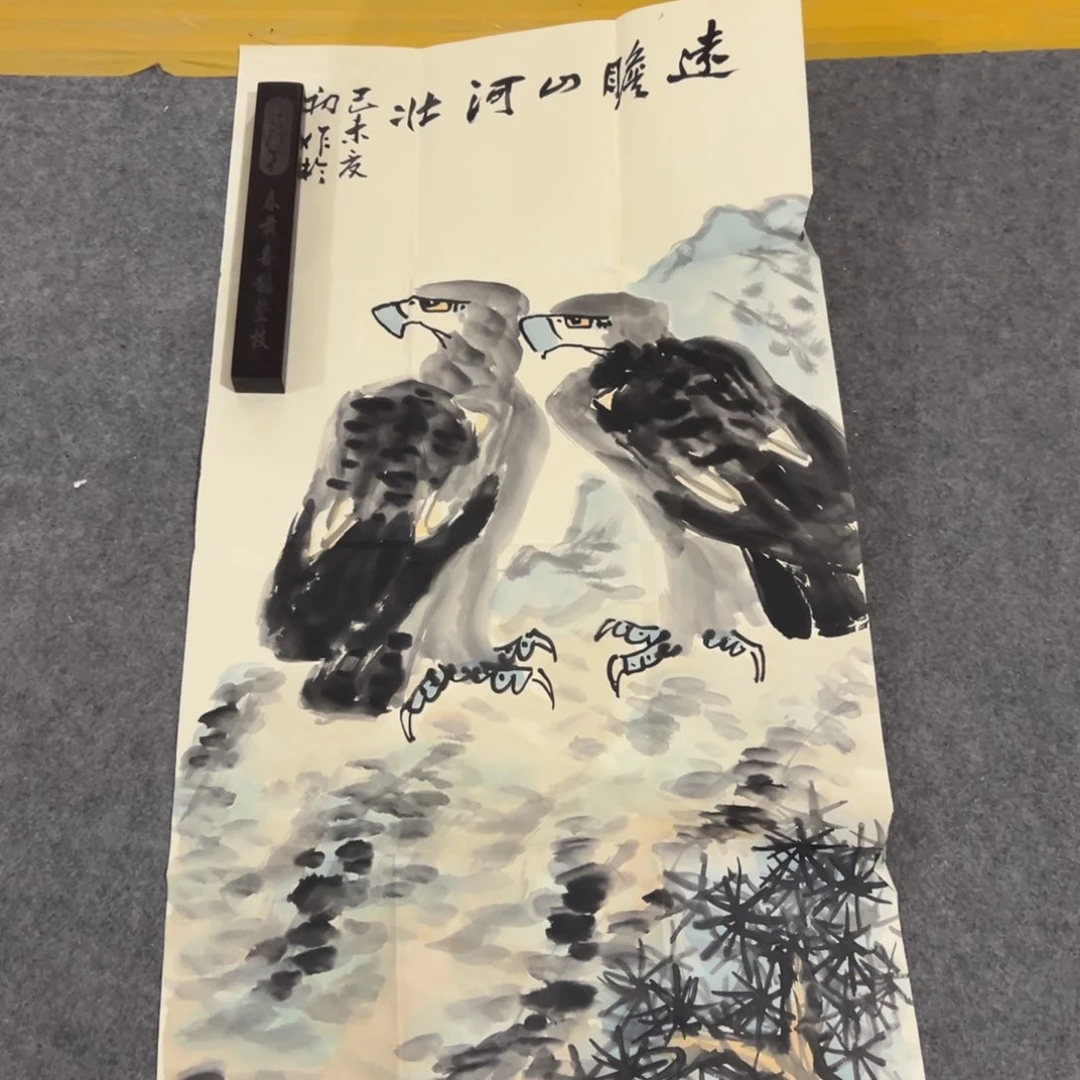 遠瞻山河壮
己未夏
初作於